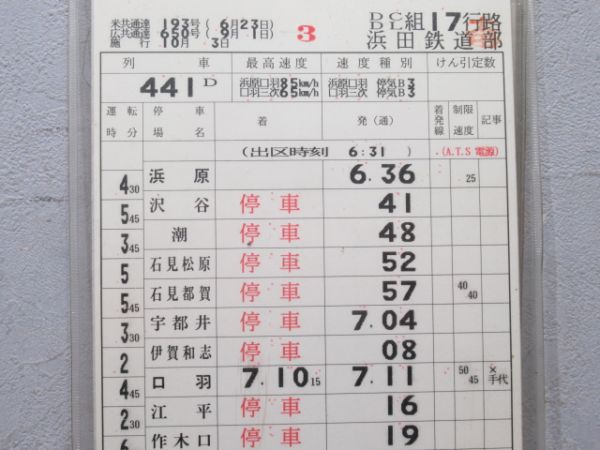 米共通達 193号(6月23日)
広共通達 650号(9月1日)
施行 10月 3日
3
DC組 17行路
浜田鉄道部
列車 最高速度 速度種別 けん引定数
441D 浜原口羽 85km/h 浜原口羽 停気B3
口羽三次 65km/h 口羽三次 停気B3
運転時分 停車場名 着 発(通) 着発線 制限速度 記事
(出区時刻 6:31 ) (A.T.S電源)
浜原 6.36 25
4 30
沢谷 停車 41
5 45
潮 停車 48
3 45
石見松原 停車 52
5
石見都賀 停車 57 40 40
5 45
宇都井 停車 7.04
3 30
伊賀和志 停車 08
2
口羽 7.10 15 7.11 50 45 × 手代
4 45
江平 停車 16
2 30
作木口 停車 19